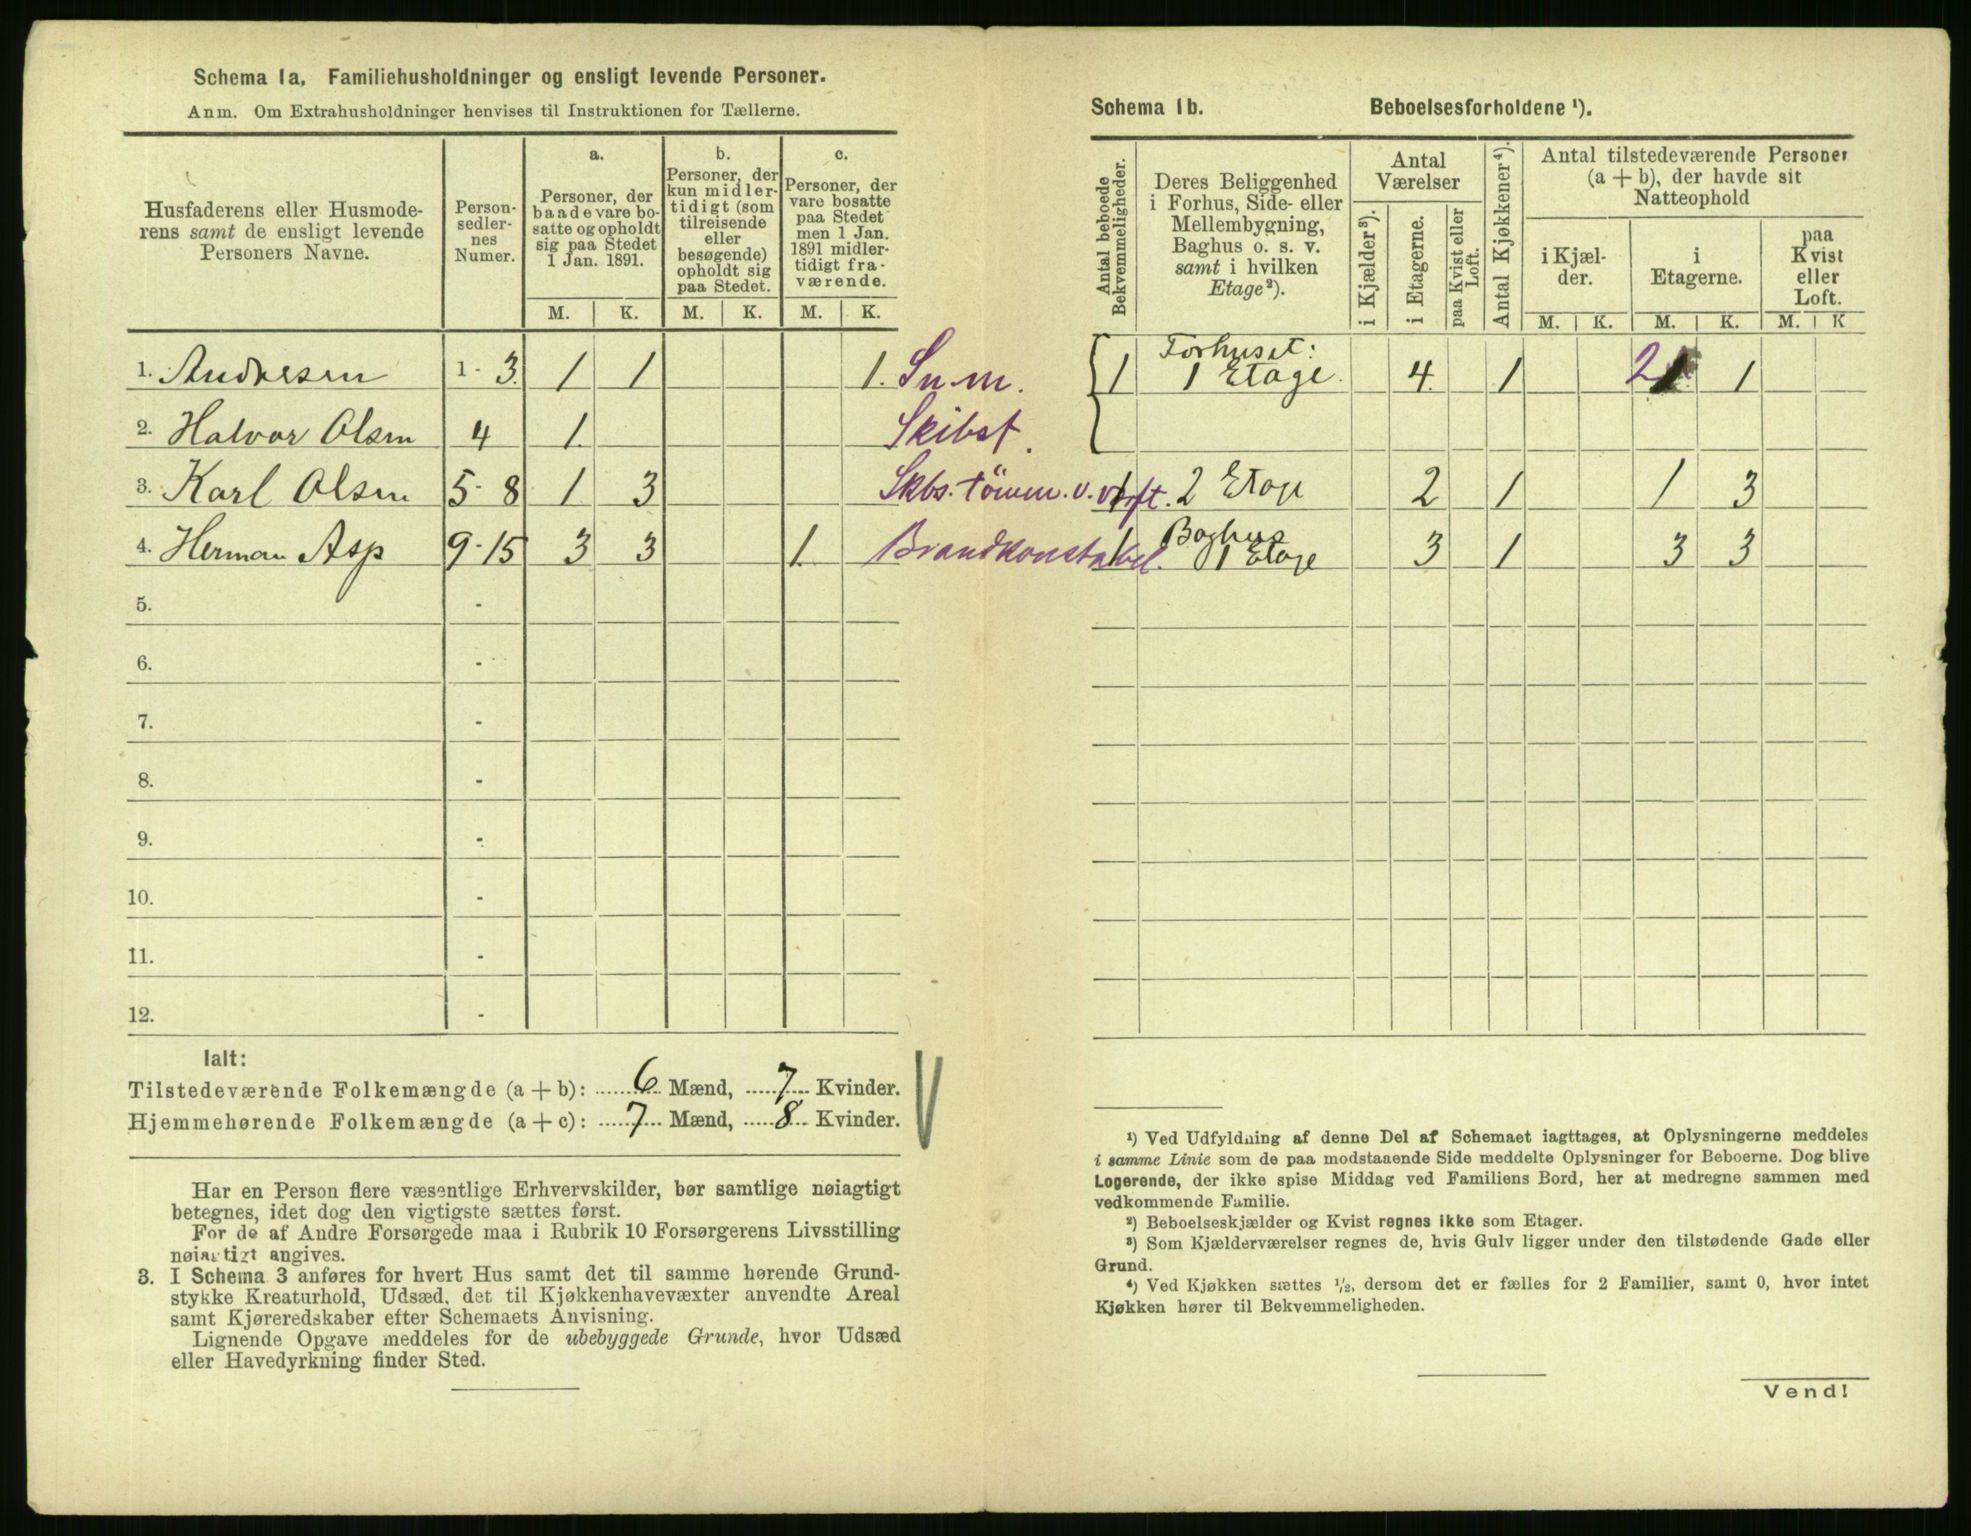 Schema 1a. Familiehusholdninger og ensligt levende Personer.
Anm. Om Extrahusholdninger henvises til Instruktionen for Tællerne.
Husfaderens eller Husmode-
rens samt de ensligt levende
Personers Navne.
Person-
sedler-
nes
Numer.
a.
Personer, der
baade vare bo-
satte og opholdt
sig paa Stedet
1 Jan. 1891.
M. K.
b.
Personer, der
kun midler-
tidigt (som
tilreisende
eller
besøgende)
opholdt sig
paa Stedet.
M. K.
c.
Personer, der
vare bosatte
paa Stedet
men 1 Jan.
1891 midler-
tidigt fra-
værende.
M. K.
1. Andresen 1 - 3. 1 1 1.
2. Halvor Olsen 4 1.
Skibst.
3. Karl Olsen 5 - 8 1 3 Skbs. tömm. v. verft.
4. Herman Asp 9 - 15 3 3 1. Brandkonstabel.
5. -
6. -
7. -
8. -
9. -
10. -
11. -
12. -
Ialt:
Tilstedeværende Folkemængde (a + b): 6 Mænd, 7 Kvinder.
Hjemmehørende Folkemængde (a + c): 7 Mænd, 8 Kvinder.
Har en Person flere væsentlige Erhvervskilder, bør samtlige nøiagtigt
betegnes, idet dog den vigtigste sættes først.
For de af Andre Forsørgede maa i Rubrik 10 Forsørgerens Livsstilling
nøiagtigt angives.
3. I Schema 3 anføres for hvert Hus samt det til samme hørende Grund-
stykke Kreaturhold, Udsæd, det til Kjøkkenhavevæxter anvendte Areal
samt Kjøreredskaber efter Schemaets Anvisning.
Lignende Opgave meddeles for de ubebyggede Grunde, hvor Udsæd
eller Havedyrkning finder Sted.
Schema 1b. Beboelsesforholdene ¹).
Antal beboede
Bekvemmeligheder.
Deres Beliggenhed
i Forhus, Side- eller
Mellembygning,
Baghus o. s. v.
samt i hvilken
Etage²).
Antal
Værelser
i Kjælder³).
i Etagerne.
paa Kvist eller
Loft.
Antal Kjøkkener⁴).
Antal tilstedeværende Personer
(a + b), der havde sit
Natteophold
i Kjæl-
der.
M. K.
i
Etagerne.
M. K.
paa
Kvist
eller
Loft.
M. K
Forhuset:
1 1 Etage. 4. 1 2 1
1 2 Etage 2 1 1 3
Baghus
1 1 Etage 3 1 3 3
¹) Ved Udfyldning af denne Del af Schemaet iagttages, at Oplysningerne meddeles
i samme Linie som de paa modstaaende Side meddelte Oplysninger for Beboerne. Dog blive
Logerende, der ikke spise Middag ved Familiens Bord, her at medregne sammen med
vedkommende Familie.
²) Beboelseskjælder og Kvist regnes ikke som Etager.
³) Som Kjælderværelser regnes de, hvis Gulv ligger under den tilstødende Gade eller
Grund.
⁴) Ved Kjøkken sættes ¹/₂, dersom det er fælles for 2 Familier, samt 0, hvor intet
Kjøkken hører til Bekvemmeligheden.
Vend!